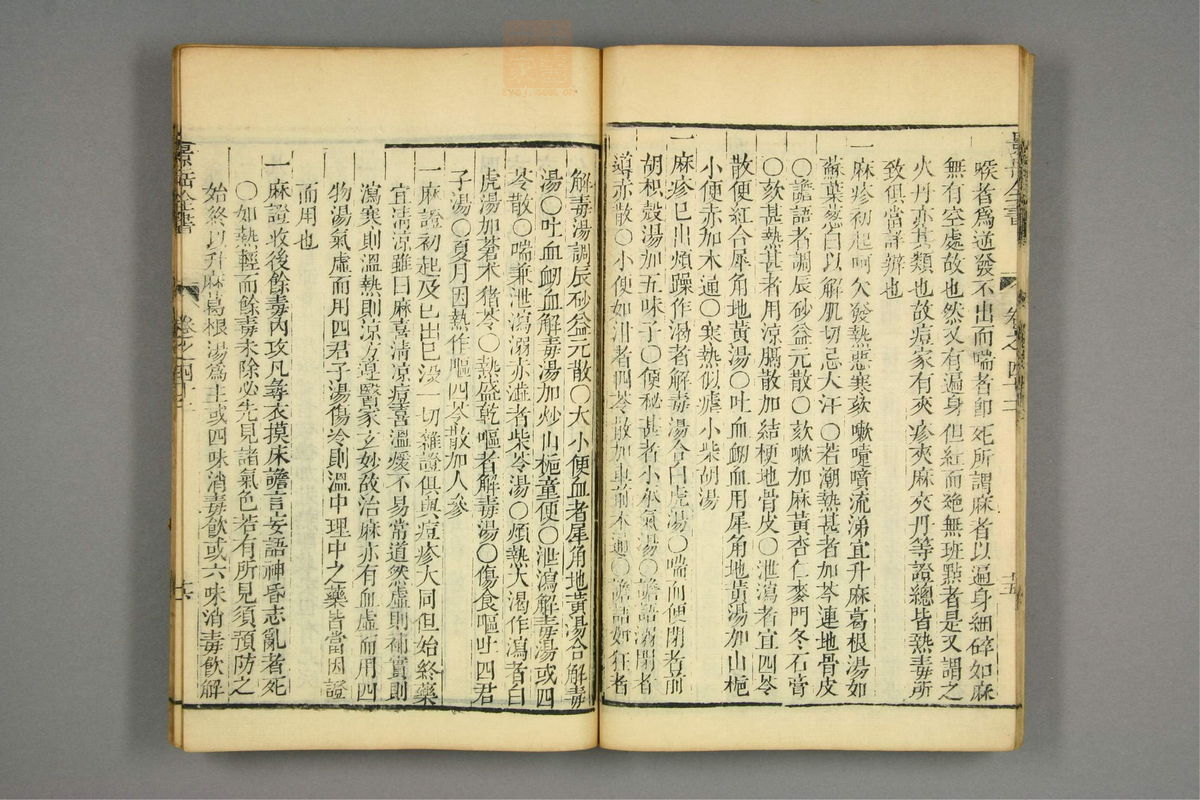 喉者爲逆發不出而喘者即死所謂麻者以遍身細碎如麻
無有空處故也然又有遍身但紅而絶無班點者是又謂之
火丹亦其類也故痘家有夾疹夾麻夾丹等證總皆熱毒所
致俱當詳辨也
一麻疹初起呵欠發熱惡寒欬嗽嚏噴流涕宜升麻葛根湯加
蘇葉葱白以解肌切忌大汗〇若潮熱甚者加芩連地骨皮
〇譫語者調辰砂益元散〇欬嗽加麻黃杏仁麥門冬石膏
〇欬甚熱甚者用涼膈散加結梗地骨皮〇泄瀉者宜四苓
散便紅合犀角地黃湯〇吐血衂血用犀角地黃湯加山梔
小便赤加木通〇寒熱似瘧小柴胡湯
一麻疹已出煩躁作渴者解毒湯合白虎湯〇喘而便閉者前
胡枳殼湯加五味子〇便秘甚者小承氣湯〇譫語溺閉者
導赤散〇小便如泔者四苓散加車前木通〇譫語如狂者
解毒湯調辰砂益元散〇大小便血者犀角地黃湯合解毒
湯〇吐血衂血解毒湯加炒山梔童便〇泄瀉解毒湯或四
苓散〇喘兼泄瀉溺亦澁者柴苓湯〇煩熱大渴作瀉者白
虎湯加蒼朮猪苓〇熱盛乾嘔者解毒湯〇傷食嘔吐四君
子湯〇夏月因熱作嘔四苓散加人參
一麻證初起及已出已没一切雜證俱與痘疹大同但始終藥
宜清涼雖曰麻喜清凉痘喜温煖不易常道然虛則補實則
瀉寒則温熱則凉方是醫家玄妙故治麻亦有血虛而用四
物湯氣虛而用四君子湯傷冷則温中理中之藥皆當因證
而用也
一麻證收後餘毒内攻凡尋衣摸床譫言妄語神昏志亂者死
〇如熱輕而餘毒未除必先見諸氣色若有所見須預防之
始終以升麻葛根湯爲主或四味消毒飲或六味消毒飲解
景岳全書
卷之四十三
景岳全書